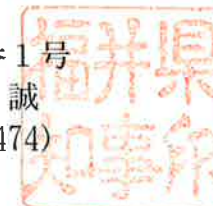 1号
誠
474)
福井県
知事印